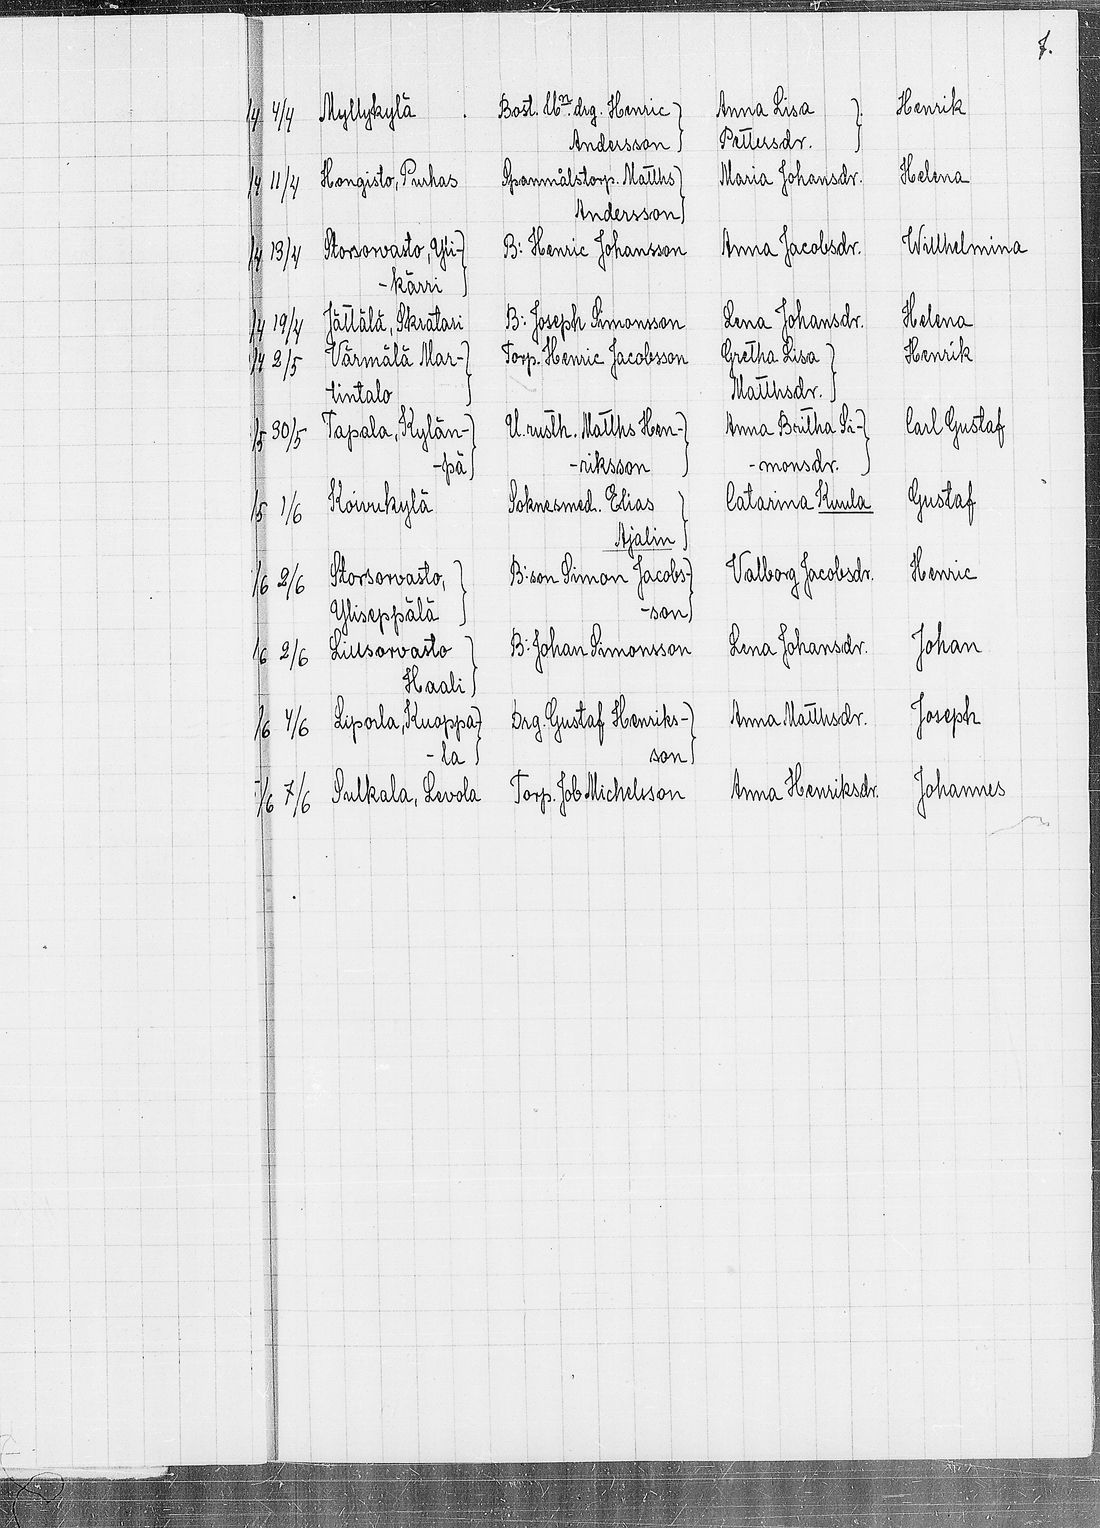 7.
/4 4/4 Myllykylä . Bost. Un. drg. Henric } Anna Lisa } Henrik
Andersson Pettersdr.
/4 11/4 Hongisto, Purhas Spanmålstorp. Matths } Maria Johansdr. Helena
Andersson
/4 13/4 Storsorvasto, Yli- } B: Henric Johansson Anna Jacobsdr. Willhelmina
-kärri
/4 19/4 Jättälä, Skratari B: Joseph Simonsson Lena Johansdr. Helena
/4 2/5 Värmälä Mar- } Torp. Henric Jacobsson Gretha Lisa } Henrik
tintalo Matthsdr.
/5 30/5 Tapala, Kylän- } U. rusth. Matths Hen- } Anna Britha Si- } Carl Gustaf
-pä -riksson -monsdr.
/5 1/6 Koivukylä Soknesmed. Elias } Catarina Kuula Gustaf
Ajalin
/6 2/6 Storsorvasto, } B:son Simon Jacobs- } Valborg Jacobsdr. Henric
Yliseppälä -son
/6 2/6 Lillsorvasto } B: Johan Simonsson Lena Johansdr. Johan
Haali
/6 4/6 Liporla, Knoppa- } Drg. Gustaf Henriks- } Anna Matthsdr. Joseph
-la son
/6 7/6 Sulkala, Levola Torp. Job Michelsson Anna Henriksdr. Johannes